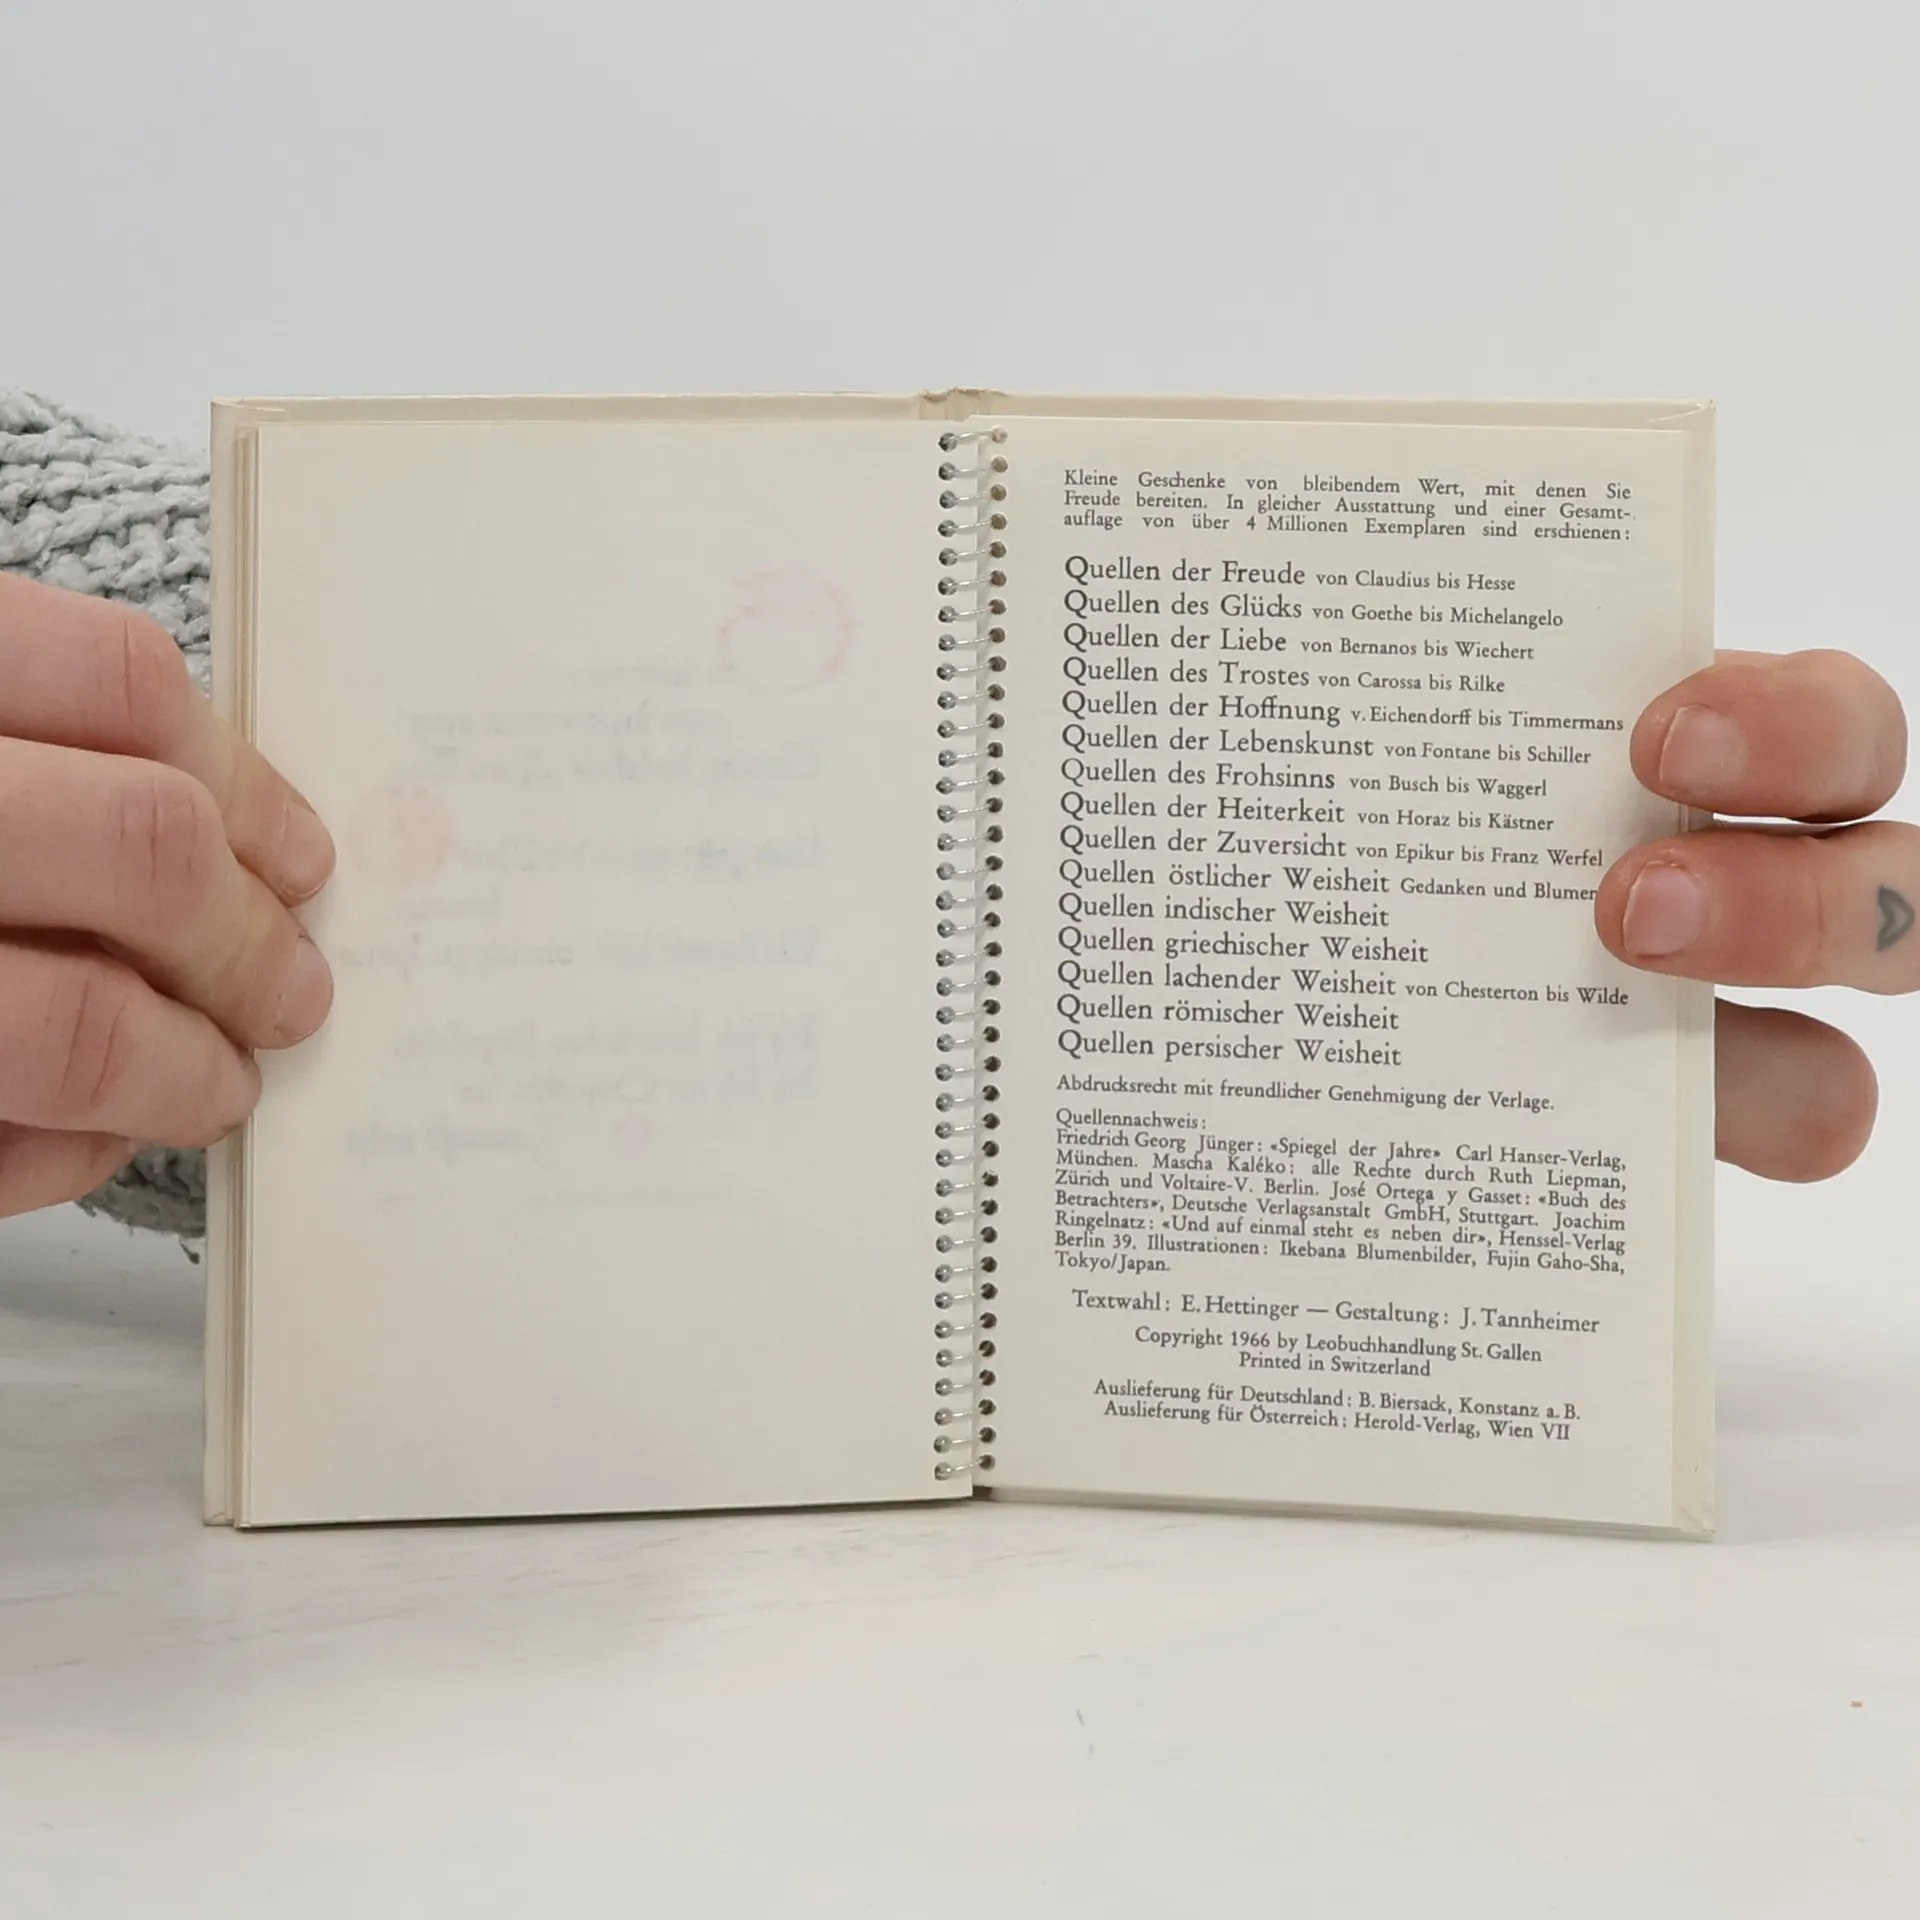 Kleine Geschenke von bleibendem Wert, mit denen Sie
Freude bereiten. In gleicher Ausstattung und einer Gesamt-
auflage von über 4 Millionen Exemplaren sind erschienen:
Quellen der Freude von Claudius bis Hesse
Quellen des Glücks von Goethe bis Michelangelo
Quellen der Liebe von Bernanos bis Wiechert
Quellen des Trostes von Carossa bis Rilke
Quellen der Hoffnung v. Eichendorff bis Timmermans
Quellen der Lebenskunst von Fontane bis Schiller
Quellen des Frohsinns von Busch bis Waggerl
Quellen der Heiterkeit von Horaz bis Kästner
Quellen der Zuversicht von Epikur bis Franz Werfel
Quellen östlicher Weisheit Gedanken und Blumen
Quellen indischer Weisheit
Quellen griechischer Weisheit
Quellen lachender Weisheit von Chesterton bis Wilde
Quellen römischer Weisheit
Quellen persischer Weisheit
Abdrucksrecht mit freundlicher Genehmigung der Verlage.
Quellennachweis:
Friedrich Georg Jünger: «Spiegel der Jahre» Carl Hanser-Verlag,
München. Mascha Kaléko: alle Rechte durch Ruth Liepman,
Zürich und Voltaire-V. Berlin. José Ortega y Gasset: «Buch des
Betrachters», Deutsche Verlagsanstalt GmbH, Stuttgart. Joachim
Ringelnatz: «Und auf einmal steht es neben dir», Henssel-Verlag
Berlin 39. Illustrationen: Ikebana Blumenbilder, Fujin Gaho-Sha,
Tokyo/Japan.
Textwahl: E. Hettinger — Gestaltung: J. Tannheimer
Copyright 1966 by Leobuchhandlung St. Gallen
Printed in Switzerland
Auslieferung für Deutschland: B. Biersack, Konstanz a. B.
Auslieferung für Österreich: Herold-Verlag, Wien VII